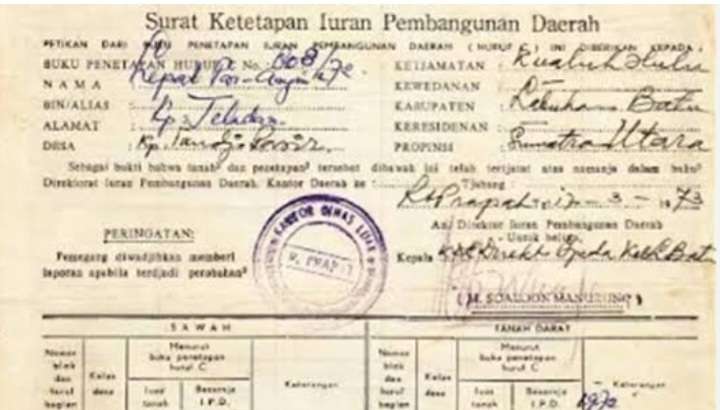 Surat Ketetapan Iuran Pembangunan Daerah
PETIKAN DARI BUKU PENETAPAN IURAN PEMBANGUNAN DAERAH ( HURUF C ) INI DIBERIKAN KEPADA :
BUKU PENETAPAN HURUF C No. KETJAMATAN : Kualuh Hulu
NAMA : KEWEDANAN :
BIN/ALIAS : KABUPATEN : Labuhan Batu
ALAMAT : Kp. Teladan KERESIDENAN :
DESA : Kp. PROPINSI : Sumatra Utara
Sebagai bukti bahwa tanah² dan penetapan² tersebut dibawah ini telah tertjatat atas namanja dalam buku²
Direktorat Iuran Pembangunan Daerah, Kantor Daerah ke : Tjabang :
R. Prapat 17 - 3 - 1973
An. Direktur Iuran Pembangunan Daerah
PERINGATAN:
Pemegang diwadjibkan memberi
laporan apabila terdjadi perobahan²
Kepala
KANTOR DINAS LUAR
R. PRAPAT
( M. SOALOON MANURUNG )
SAWAH TANAH DARAT
Nomor blok dan huruf bagian
Kelas desa
Menurut buku penetapan huruf C
Luas tanah
Besarnja I.P.D.
Keterangan
Nomor blok dan huruf bagian
Kelas desa
Menurut buku penetapan huruf C
Luas tanah
Besarnja I.P.D.
Keterangan
1972